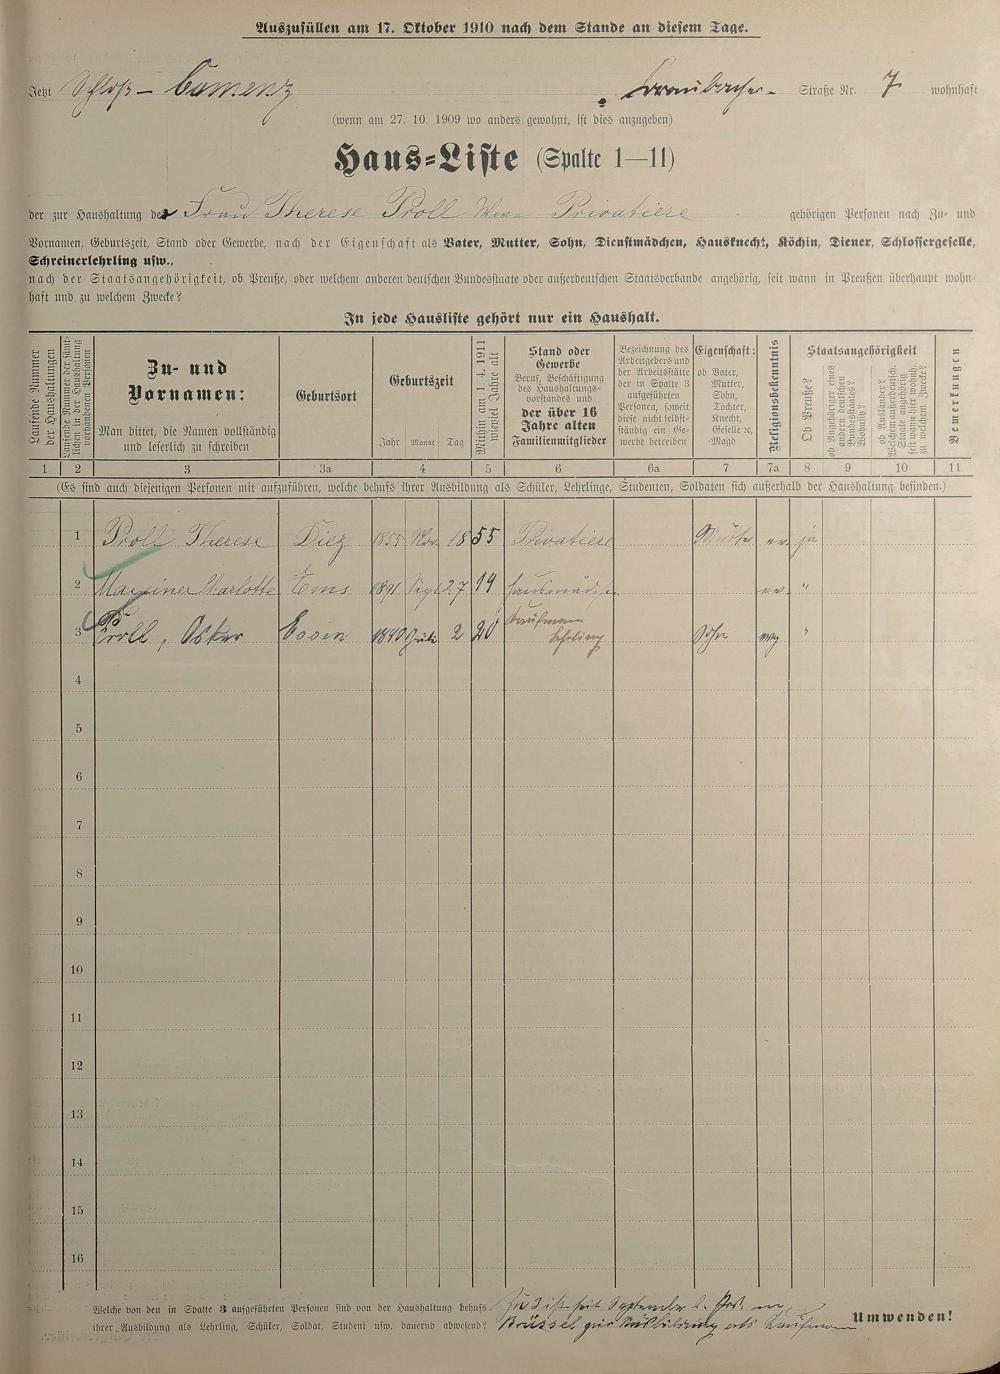 Auszufüllen am 17. Oktober 1910 nach dem Stande an diesem Tage.
Jetzt Schloß- Camenz Braubacher- Straße Nr. 7 wohnhaft
(wenn am 27. 10. 1909 wo anders gewohnt, ist dies anzugeben)
Haus-Liste (Spalte 1—11)
der zur Haushaltung der Frau Therese Proll Privatiere gehörigen Personen nach Zu- und
Vornamen, Geburtszeit, Stand oder Gewerbe, nach der Eigenschaft als Vater, Mutter, Sohn, Dienstmädchen, Hausknecht, Köchin, Diener, Schlossergeselle,
Schreinerlehrling usw.,
nach der Staatsangehörigkeit, ob Preuße, oder welchem anderen deutschen Bundesstaate oder außerdeutschen Staatsverbande angehörig, seit wann in Preußen überhaupt wohn-
haft und zu welchem Zwecke?
In jede Hausliste gehört nur ein Haushalt.
Laufende Nummer
der Haushaltungen
Laufende Nummer der sämt-
lichen in der Haushaltung
vorhandenen Personen
Zu- und
Vornamen:
Man bittet, die Namen vollständig
und leserlich zu schreiben
Geburtsort
Geburtszeit
Jahr Monat Tag
Mithin am 1. 4. 1911
wieviel Jahre alt
Stand oder
Gewerbe
Beruf, Beschäftigung
des Haushaltungs-
vorstandes und
der über 16
Jahre alten
Familienmitglieder
Bezeichnung des
Arbeitgebers und
der Arbeitsstätte
der in Spalte 3
aufgeführten
Personen, soweit
diese nicht selbst-
ständig ein Ge-
werbe betreiben
Eigenschaft:
ob Vater,
Mutter,
Sohn,
Tochter,
Knecht,
Geselle ec,
Magd
Religionsbekenntnis
Staatsangehörigkeit
Ob Preuße?
ob Angehöriger eines
andern deutschen
Bundesstaates?
Wohnsitz?
ob Ausländer?
Welchem außerdeutsch.
Staate angehörig
seit wann hier wohnh.
zu welchem Zwecke?
Bemerkungen
1 2 3 3a 4 5 6 6a 7 7a 8 9 10 11
(Es sind auch diejenigen Personen mit aufzuführen, welche behufs ihrer Ausbildung als Schüler, Lehrlinge, Studenten, Soldaten sich außerhalb der Haushaltung befinden.)
1 Proll Therese Diez 1855 Nov. 18 55 Privatiere Mutter ev. ja
2 Charlotte Ems 1891 Sept 27 19 Hausmädchen ev. "
3 Proll, Oskar Essen Juli 2 20 Kaufmann Lehrling Sohn evg "
4
5
6
7
8
9
10
11
12
13
14
15
16
Welche von den in Spalte 3 aufgeführten Personen sind von der Haushaltung behufs
ihrer Ausbildung als Lehrling, Schüler, Soldat, Student usw. dauernd abwesend?
Zu 3 ist seit September in
Brüssel zur Ausbildung als Kaufmann
Umwenden!